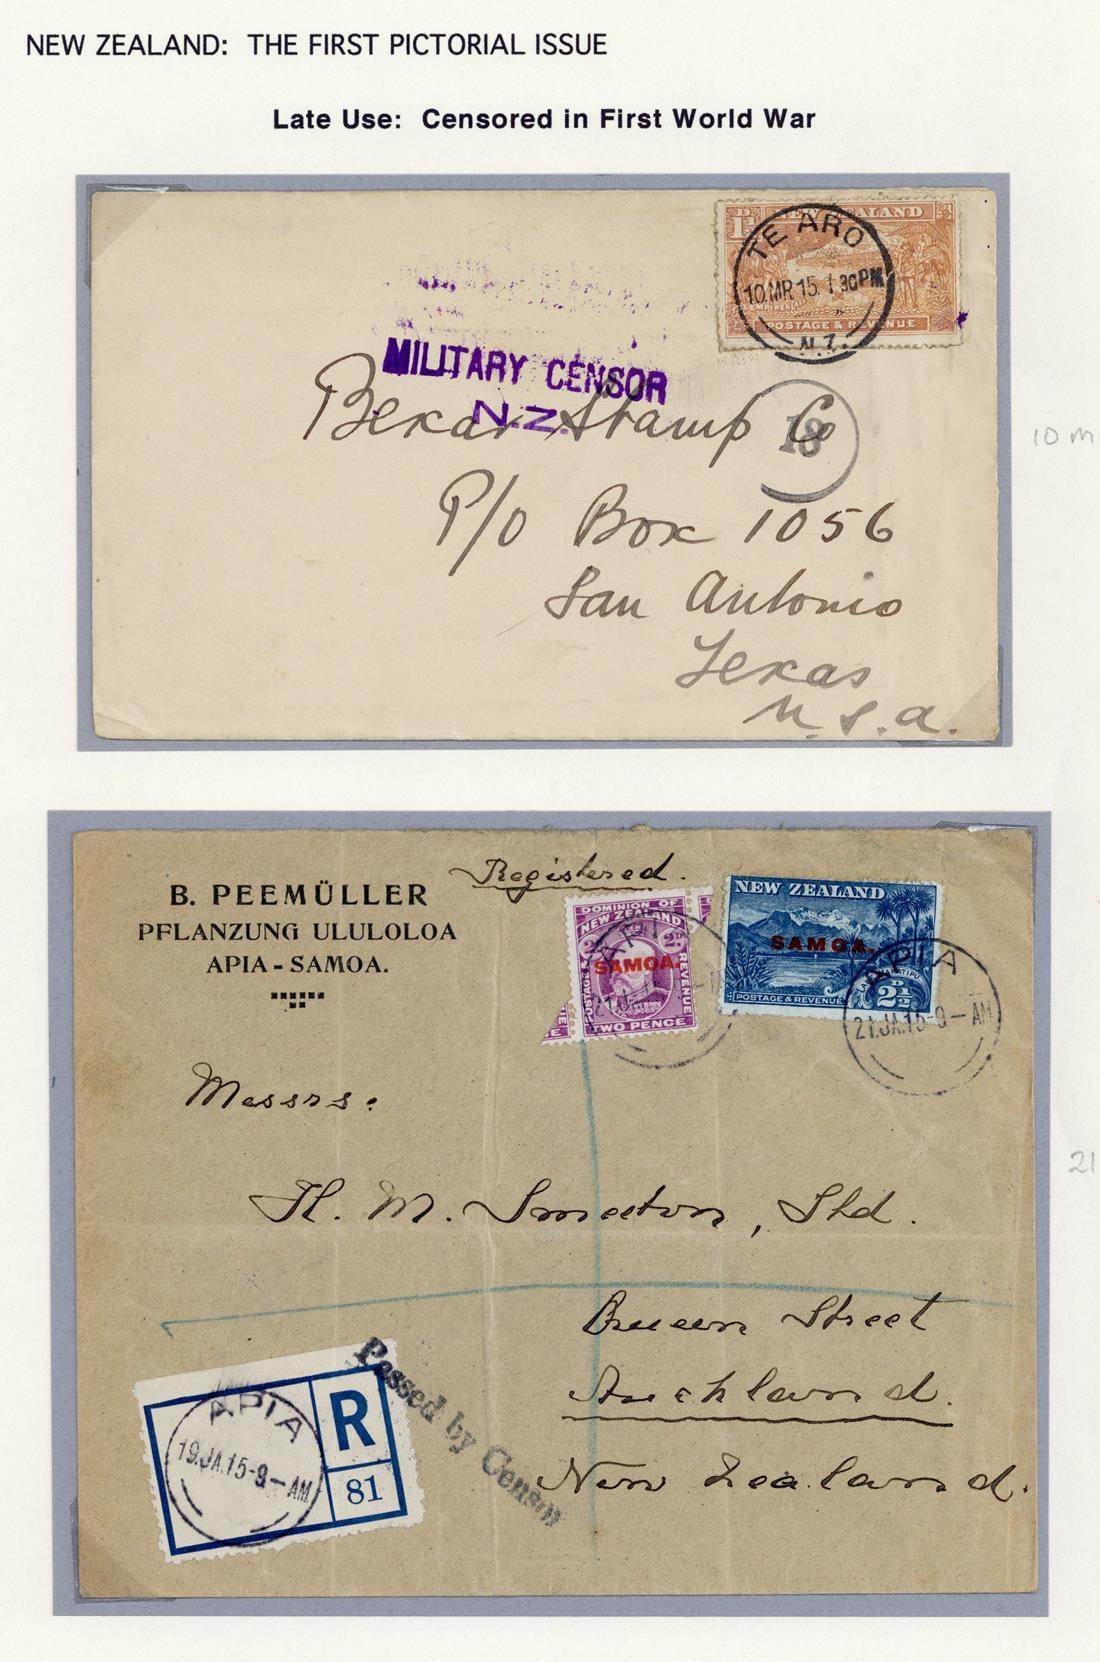 NEW ZEALAND: THE FIRST PICTORIAL ISSUE
Late Use: Censored in First World War
NEW ZEALAND
POSTAGE & REVENUE
TE ARO
10.MR.15.1.30PM
N.Z.
MILITARY CENSOR
N.Z.
18
Bexar Stamp Co
P/o Box 1056
San Antonio
Texas
U.S.A.
10 M
B. PEEMÜLLER
PFLANZUNG ULULOLOA
APIA - SAMOA.
Registered.
DOMINION OF
NEW ZEALAND
2D 2D
SAMOA.
POSTAGE & REVENUE
TWO PENCE
APIA
NEW ZEALAND
SAMOA.
POSTAGE & REVENUE
2½D
APIA
21.JA.15-9-AM
Messrs:
H. M. Smeeton, Ltd.
Queen Street
Auckland.
New Zealand.
21
R
81
APIA
19.JA.15-9-AM.
Passed by Censor